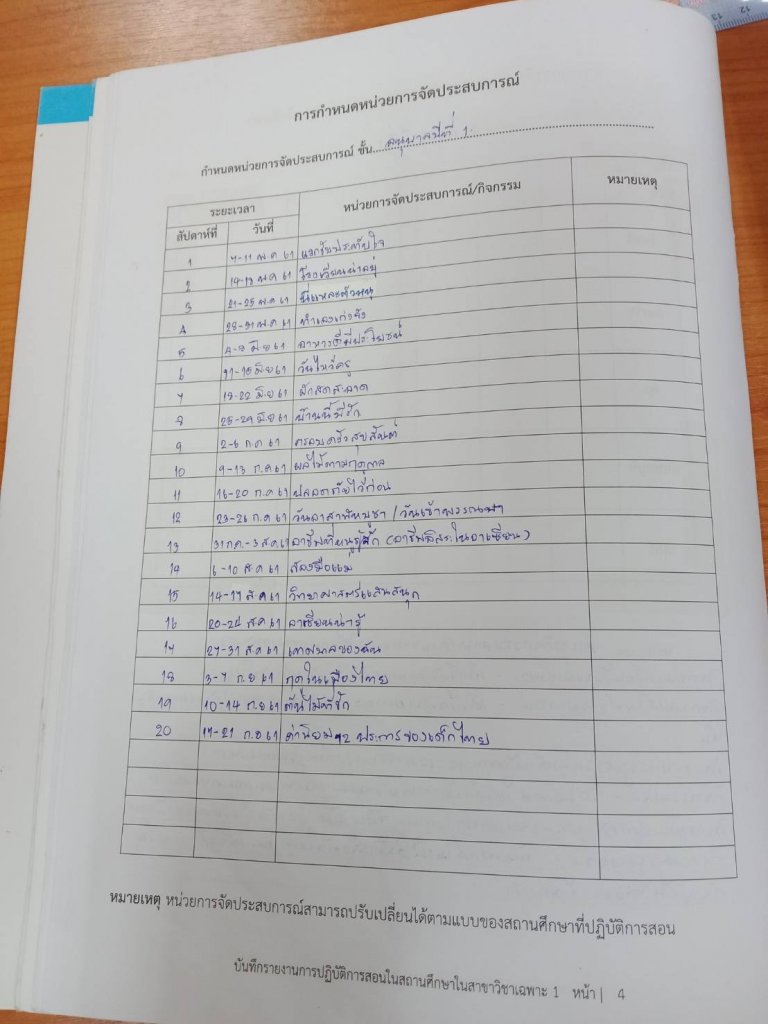 การกำหนดหน่วยการจัดประสบการณ์
กำหนดหน่วยการจัดประสบการณ์ ชั้น....อนุบาลปีที่ 1....
ระยะเวลา หน่วยการจัดประสบการณ์/กิจกรรม หมายเหตุ
สัปดาห์ที่ วันที่
1 7-11 พ.ค 61 แรกรับประทับใจ
2 14-18 พ.ค 61 โรงเรียนน่าอยู่
3 21-25 พ.ค 61 นี่แหละตัวหนู
4 28-31 พ.ค 61 ทำเองเก่งจัง
5 4-8 มิ.ย 61 อาหารดีมีประโยชน์
6 11-15 มิ.ย 61 วันไหว้ครู
7 18-22 มิ.ย 61 ผักสดสะอาด
8 25-29 มิ.ย 61 บ้านนี้มีรัก
9 2-6 ก.ค 61 ครอบครัวสุขสันต์
10 9-13 ก.ค 61 ผลไม้ตามฤดูกาล
11 16-20 ก.ค 61 ปลอดภัยไว้ก่อน
12 23-26 ก.ค 61 วันอาสาฬหบูชา / วันเข้าพรรษา
13 31 ก.ค.-3 ส.ค 61 อาชีพที่หนูรู้จัก (อาชีพอิสระในอาเซียน)
14 6-10 ส.ค 61 สองมือแม่
15 14-17 ส.ค 61 วิทยาศาสตร์แสนสนุก
16 20-24 ส.ค 61 อาเซียนน่ารู้
17 27-31 ส.ค 61 เทศบาลของฉัน
18 3-7 ก.ย 61 ฤดูในเมืองไทย
19 10-14 ก.ย 61 ต้นไม้ที่รัก
20 17-21 ก.ย 61 ค่านิยม 12 ประการของเด็กไทย
หมายเหตุ หน่วยการจัดประสบการณ์สามารถปรับเปลี่ยนได้ตามแบบของสถานศึกษาที่ปฏิบัติการสอน
บันทึกรายงานการปฏิบัติการสอนในสถานศึกษาในสาขาวิชาเฉพาะ 1 หน้า | 4